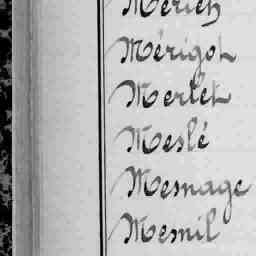 Mérigot
Merlet
Meslé
Mesnage
Mesnil